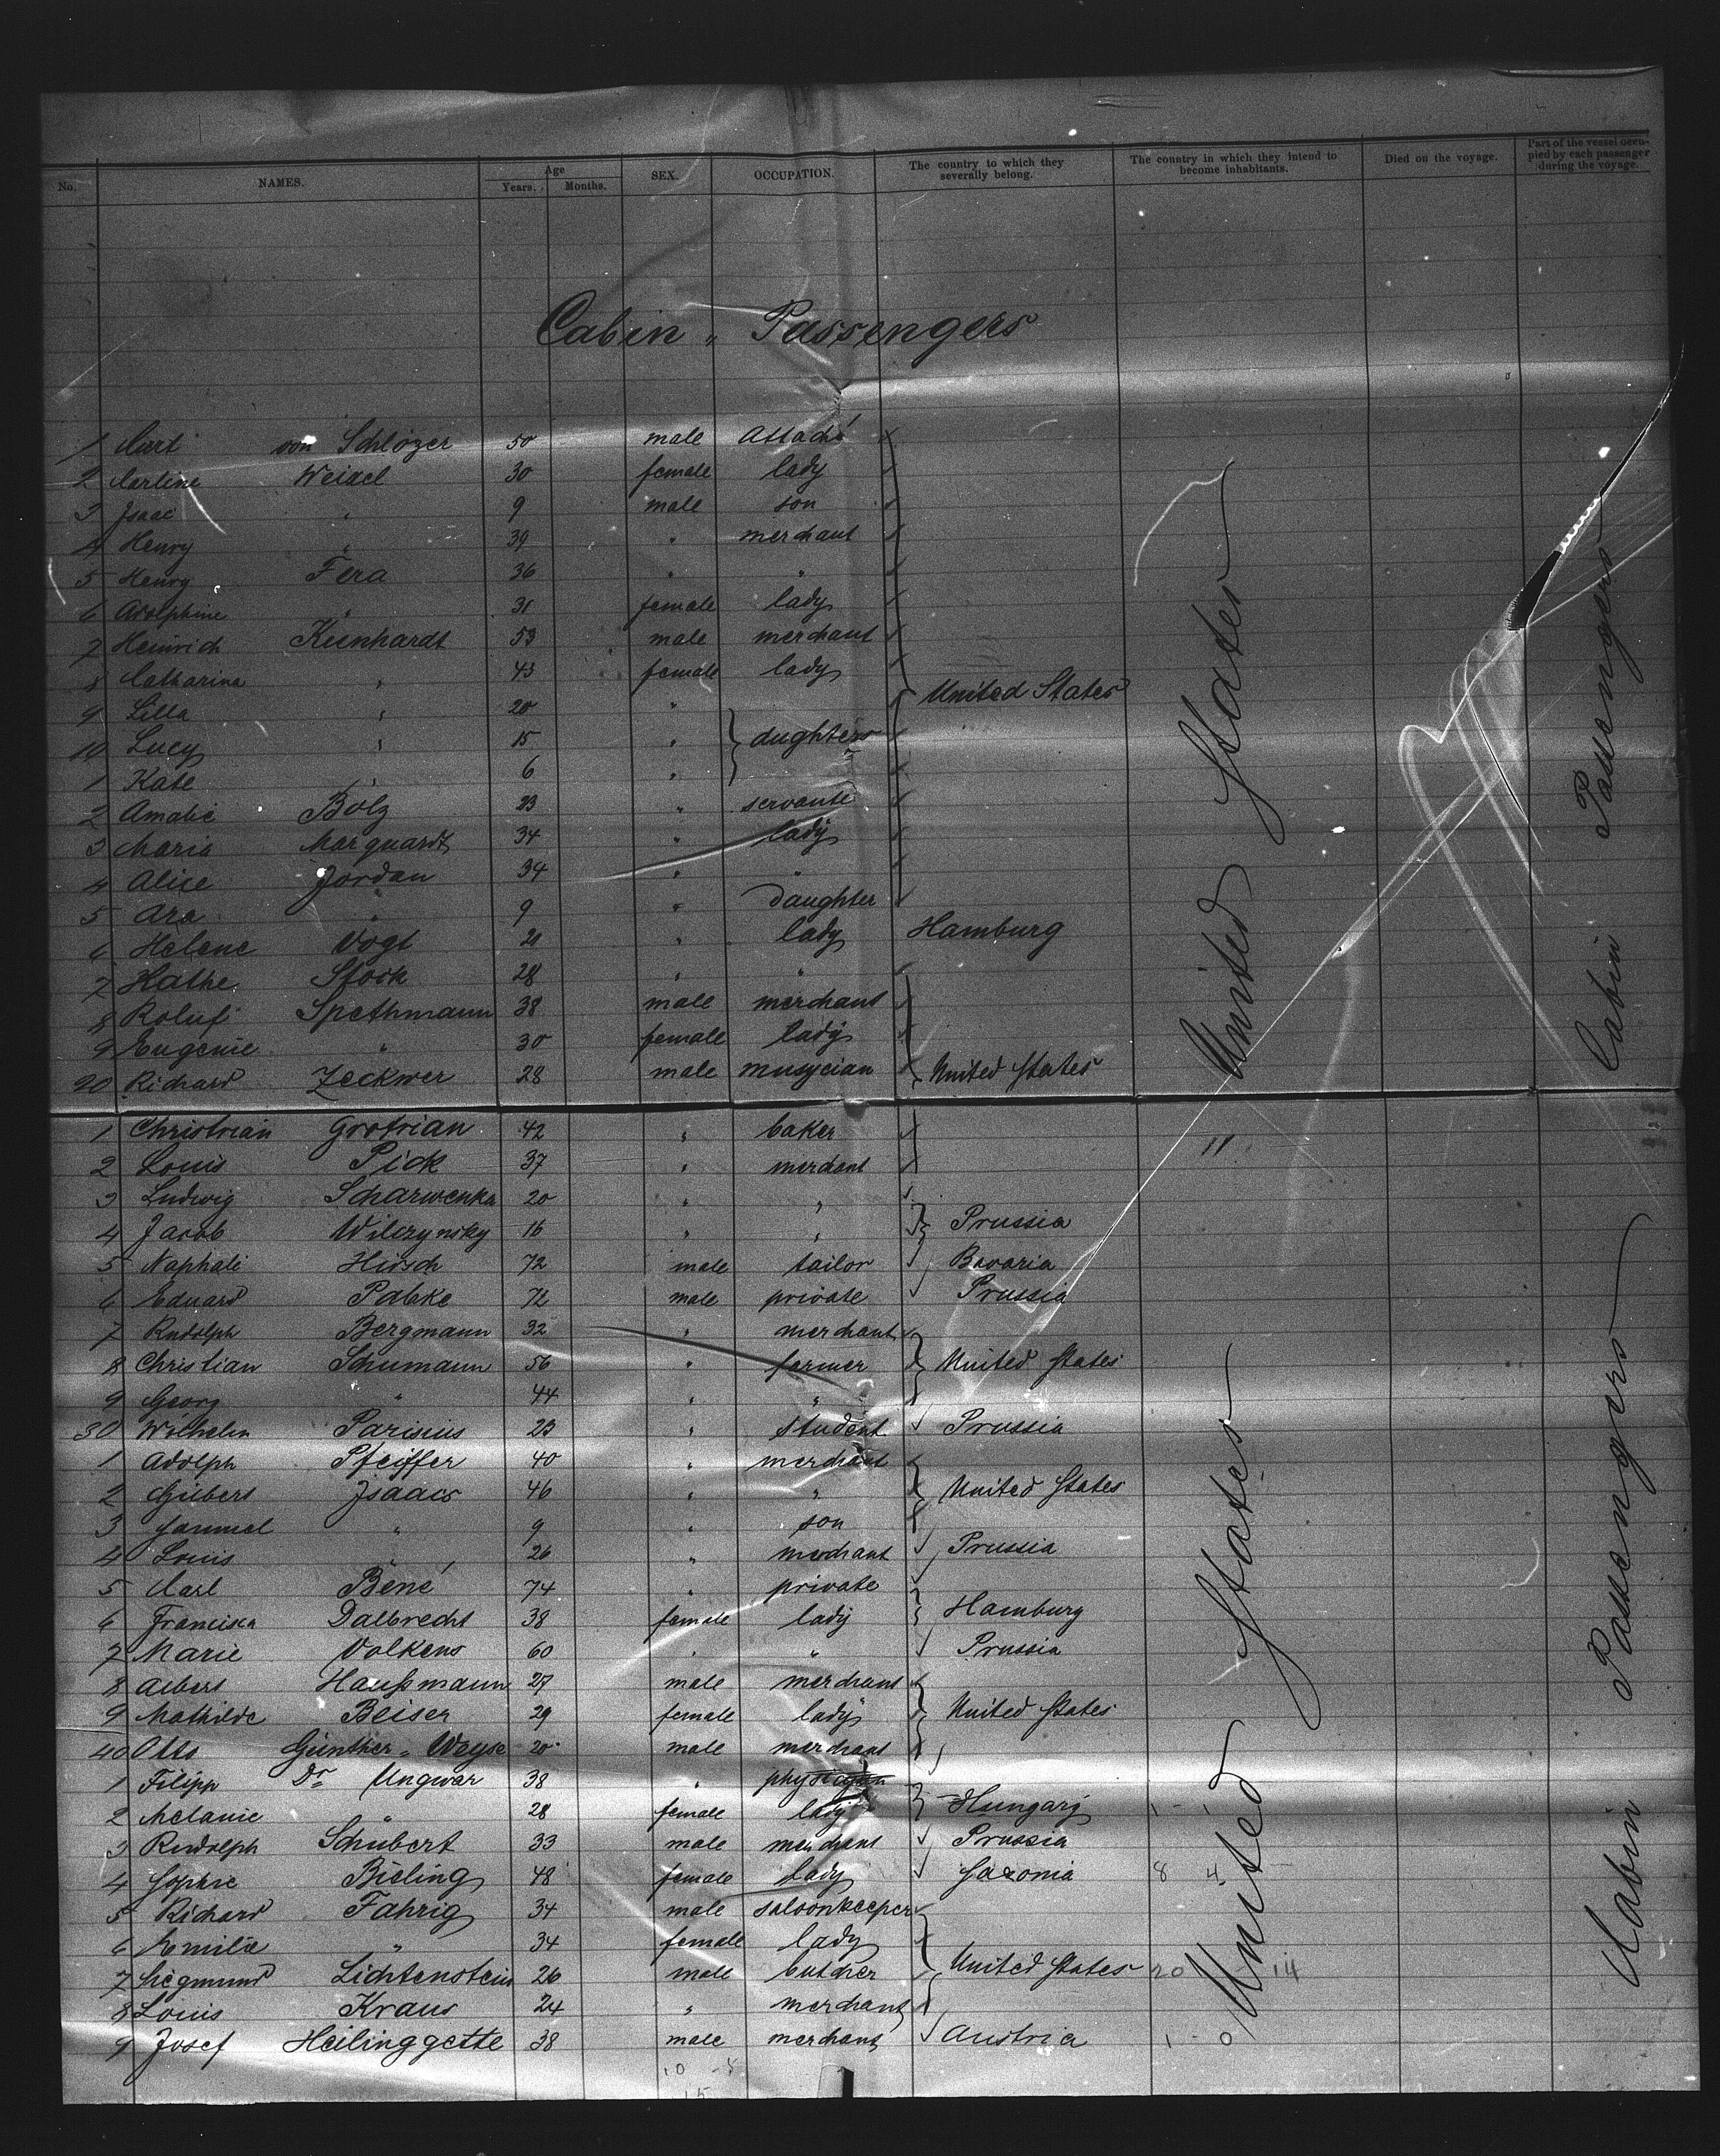 No. NAMES. Age Years. Months. SEX. OCCUPATION. The country to which they severally belong. The country in which they intend to become inhabitants. Died on the voyage. Part of the vessel occupied by each passenger during the voyage.
Cabin " Passengers
1 Curt von Schlözer 50 male Attaché
2 Carline Weidel 30 female lady
3 Isaac " 9 male son
4 Henry " 39 " merchant
5 Henry Fera 36 " "
6 Adolphine " 31 female lady
7 Heinrich Kunhardt 53 male merchant
8 Catharina " 43 female lady
9 Lilla " 20 " United States
10 Lucy " 15 " dughters
1 Kate " 6 "
2 Amalie Bolz 23 " servante
3 Maria Marquardt 34 " lady
4 Alice Jordan 34 " "
5 Ara " 9 " Daughter
6 Helene Vogt 21 " lady Hamburg
7 Kathe Stock 28 " "
8 Roluf Spethmann 38 male merchant
9 Eugenie " 30 female lady
20 Richard Zeckwer 28 male musycian United States
United States
Cabin Passengers
1 Christrian Grotrian 42 " baker
2 Louis Pick 37 " merchant
3 Ludwig Scharwenka 20 " "
4 Jacob Wilczynsky 16 " " Prussia
5 Naphali Hirsch 72 male tailor Bavaria
6 Eduard Pabke 72 male private Prussia
7 Rudolph Bergmann 32 " merchant
8 Christian Schumann 56 " farmer United States
9 Georg " 44 " "
30 Wilhelm Parisius 23 " student Prussia
1 Adolph Pfeiffer 40 " merchant
2 Gilbert Isaacs 46 " " United States
3 Sammel " 9 " son
4 Louis " 26 " merchant Prussia
5 Carl Bené 74 " private
6 Franciska Dalbrecht 38 female lady Hamburg
7 Marie Volkens 60 " " Prussia
8 Albert Haußmann 27 male merchant
9 Mathilde Beiser 29 female lady United States
40 Otto Günther-Weyse 20 male merchant
1 Filipp Dr Ungwar 38 " physicyan
2 Melanie " 28 female lady Hungary 1 -
3 Rudolph Schubert 33 male merchant Prussia
4 Sophie Bieling 48 female lady Saxonia 8 4
5 Richard Fahrig 34 male saloonkeeper
6 Emilie " 34 female lady
7 Siegmund Lichtenstein 26 male butcher United States 20 14
8 Louis Kraus 24 " merchant
9 Josef Heilinggette 38 male merchant Austria 1 - 0
United States
Cabin Passengers